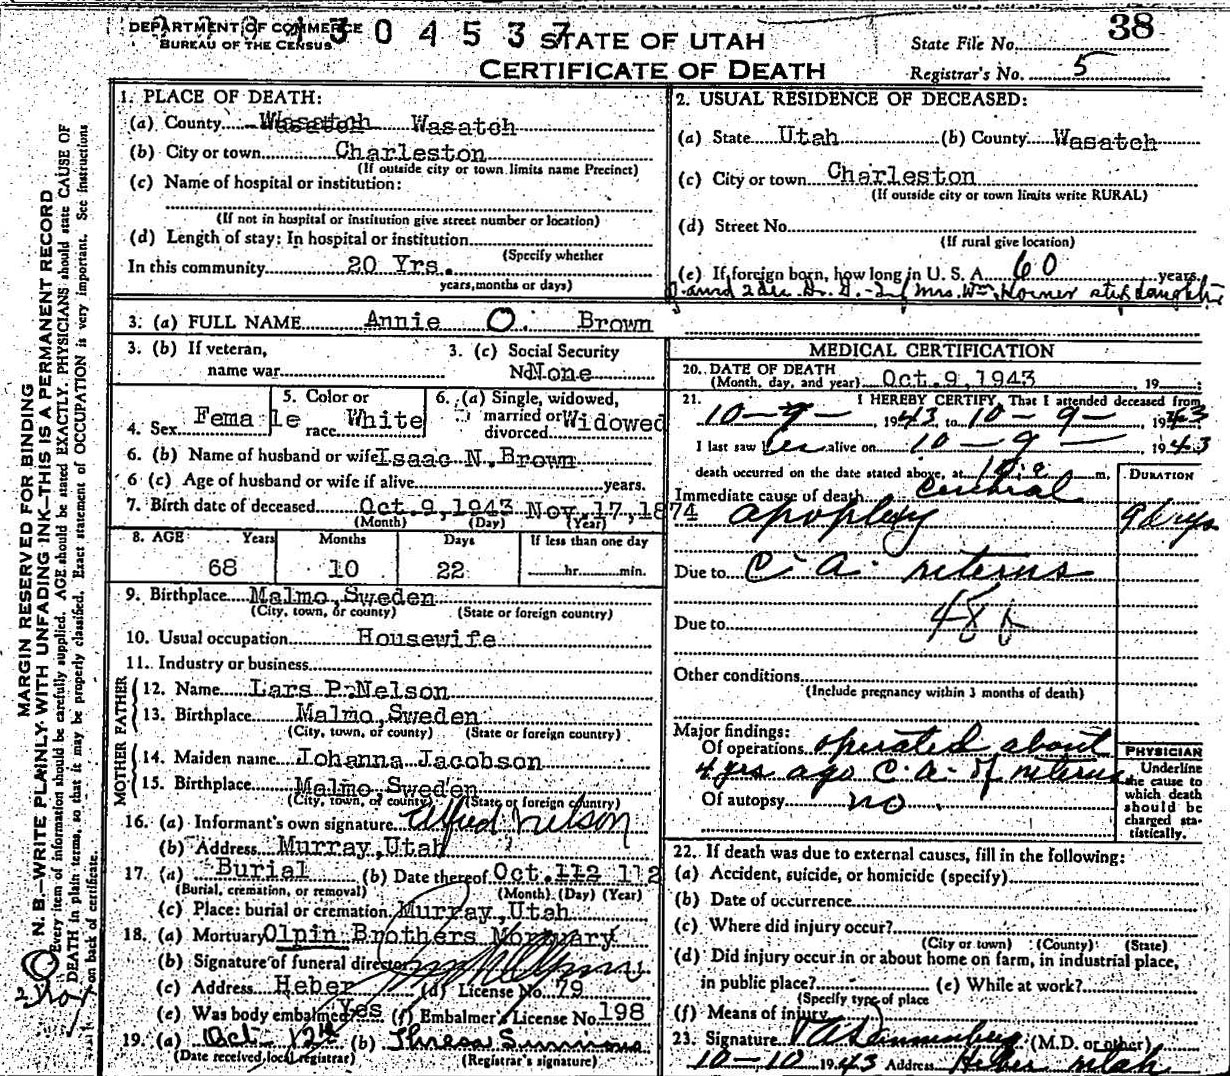 DEPARTMENT OF COMMERCE
BUREAU OF THE CENSUS
130453
STATE OF UTAH
CERTIFICATE OF DEATH
38
State File No.
Registrar's No. 5
MARGIN RESERVED FOR BINDING
N. B.—WRITE PLAINLY WITH UNFADING INK—THIS IS A PERMANENT RECORD
Every item of information should be carefully supplied. AGE should be stated EXACTLY. PHYSICIANS should state CAUSE OF
DEATH in plain terms, so that it may be properly classified. Exact statement of OCCUPATION is very important. See instructions
on back of certificate.
1. PLACE OF DEATH:
(a) County Wasatch Wasatch
(b) City or town Charleston
(If outside city or town limits name Precinct)
(c) Name of hospital or institution:
(If not in hospital or institution give street number or location)
(d) Length of stay: In hospital or institution
(Specify whether
In this community 20 Yrs.
years, months or days)
2. USUAL RESIDENCE OF DECEASED:
(a) State Utah (b) County Wasatch
(c) City or town Charleston
(If outside city or town limits write RURAL)
(d) Street No.
(If rural give location)
(e) If foreign born, how long in U. S. A. 60 years
Mrs. Wm. Horner step daughter
3. (a) FULL NAME Annie O. Brown
3. (b) If veteran,
name war
3. (c) Social Security
No None
4. Sex Female
5. Color or
race White
6. (a) Single, widowed,
married or
divorced Widowed
6. (b) Name of husband or wife Isaac N. Brown
6 (c) Age of husband or wife if alive years.
7. Birth date of deceased Oct. 9, 1943 Nov. 17, 1874
(Month) (Day) (Year)
8. AGE Years Months Days If less than one day
68 10 22 hr. min.
9. Birthplace Malmo, Sweden
(City, town, or county) (State or foreign country)
10. Usual occupation Housewife
11. Industry or business
FATHER
12. Name Lars P. Nelson
13. Birthplace Malmo, Sweden
(City, town, or county) (State or foreign country)
MOTHER
14. Maiden name Johanna Jacobson
15. Birthplace Malmo, Sweden
(City, town, or county) (State or foreign country)
16. (a) Informant's own signature Alfred Nelson
(b) Address Murray, Utah
17. (a) Burial (b) Date thereof Oct. 112 112
(Burial, cremation, or removal) (Month) (Day) (Year)
(c) Place: burial or cremation Murray, Utah
18. (a) Mortuary Olpin Brothers Mortuary
(b) Signature of funeral director
(c) Address Heber (d) License No. 79
(e) Was body embalmed? Yes (f) Embalmer's License No. 198
19. (a) Oct - 12th (b) Thresa Simmons
(Date received, local registrar) (Registrar's signature)
MEDICAL CERTIFICATION
20. DATE OF DEATH
(Month, day, and year) Oct. 9, 1943, 19
21. I HEREBY CERTIFY, That I attended deceased from
10-9-, 1943, to 10-9-, 1943
I last saw her alive on 10-9-, 1943
death occurred on the date stated above, at m.
DURATION
Immediate cause of death cerebral
apoplexy 9 days
Due to C. A. uterus
48
Due to
Other conditions
(Include pregnancy within 3 months of death)
Major findings:
Of operations operated about
4 yrs ago C. A. of uterus
Of autopsy no.
PHYSICIAN
Underline
the cause to
which death
should be
charged sta-
tistically.
22. If death was due to external causes, fill in the following:
(a) Accident, suicide, or homicide (specify)
(b) Date of occurrence
(c) Where did injury occur?
(City or town) (County) (State)
(d) Did injury occur in or about home on farm, in industrial place,
in public place? (e) While at work?
(Specify type of place
(f) Means of injury
23. Signature (M.D. or other)
10-10 1943 Address Heber Utah